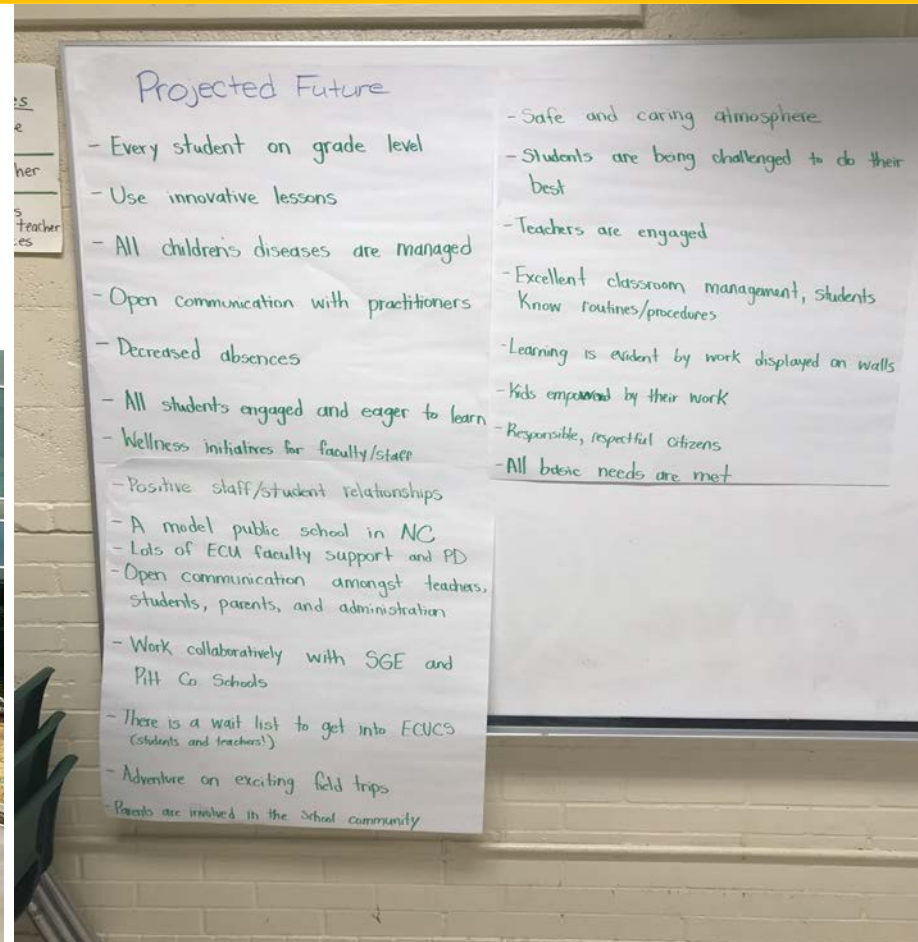 es
e
her
s
teacher
es
Projected Future
- Every student on grade level
- Use innovative lessons
- All childrens diseases are managed
- Open communication with practitioners
- Decreased absences
- All students engaged and eager to learn
- Wellness initiatives for faculty/staff
- Positive staff/student relationships
- A model public school in NC
- Lots of ECU faculty support and PD
- Open communication amongst teachers,
students, parents, and administration
- Work collaboratively with SGE and
Pitt Co Schools
- There is a wait list to get into ECUCS
(students and teachers!)
- Adventure on exciting field trips
- Parents are involved in the school community
- Safe and caring atmosphere
- Students are being challenged to do their
best
- Teachers are engaged
- Excellent classroom management, students
Know routines/procedures
- Learning is evident by work displayed on walls
- Kids empowered by their work
- Responsible, respectful citizens
- All basic needs are met